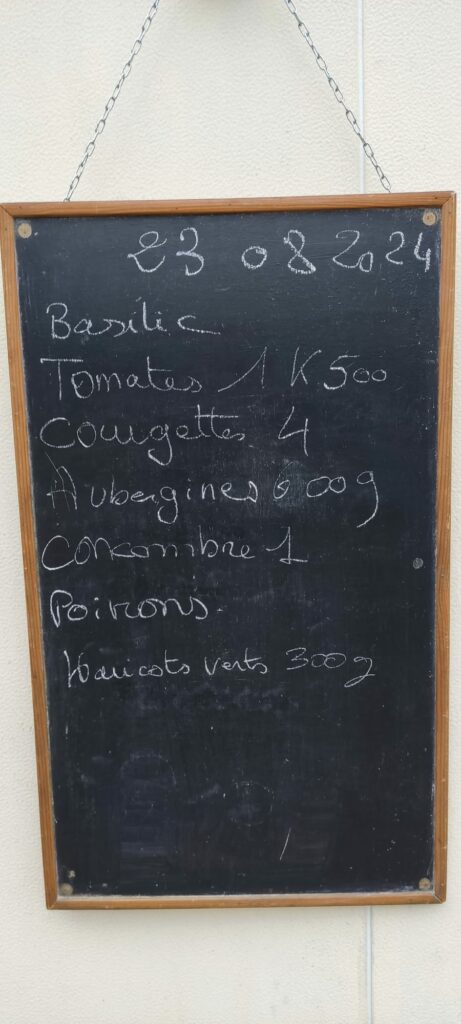 23 08 2024
Basilic
Tomates 1 K 500
Courgettes 4
Aubergines 600g
Concombre 1
Poivrons.
Haricots verts 300g